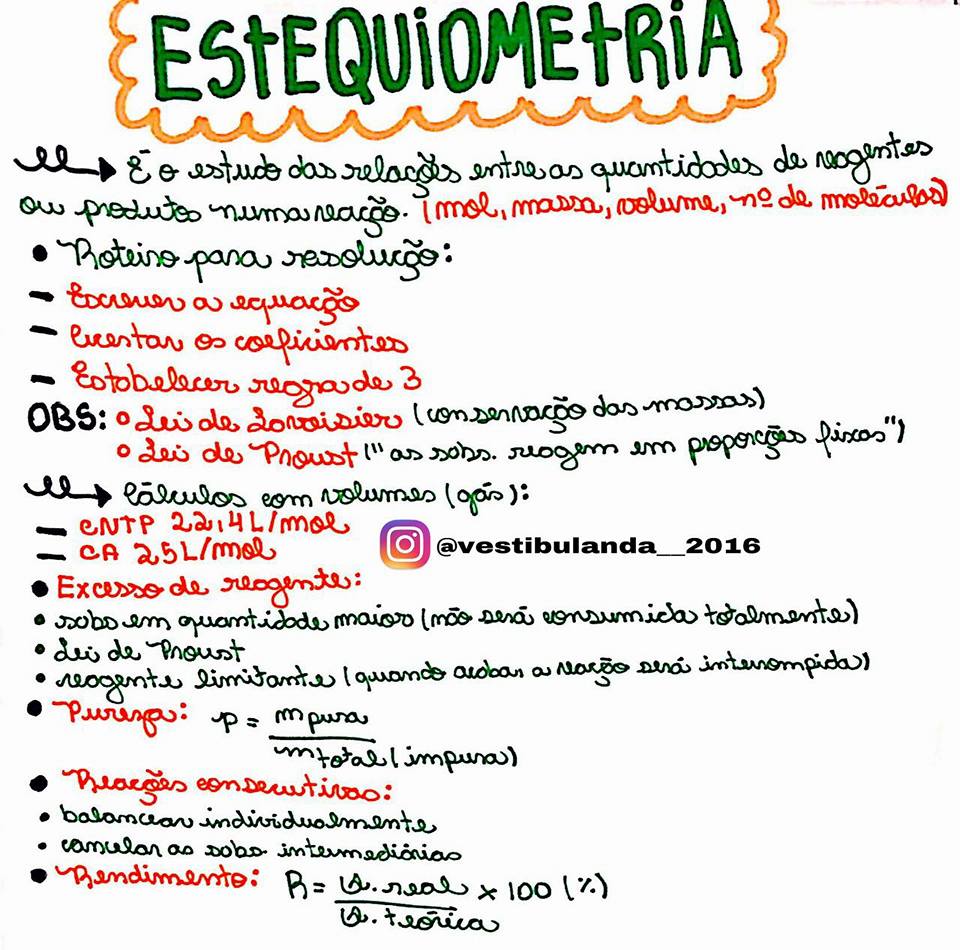 ESTEQUIOMETRIA
É o estudo das relações entre as quantidades de reagentes
ou produtos numa reação. (mol, massa, volume, nº de moléculas)
• Roteiro para resolução:
- Escrever a equação
- Acertar os coeficientes
- Estabelecer regra de 3
OBS: • Lei de Lavoisier (conservação das massas)
• Lei de Proust ("as subs. reagem em proporções fixas")
Cálculos com volumes (gás):
- CNTP 22,4L/mol
- CA 25L/mol
@vestibulanda__2016
• Excesso de reagente:
• subs em quantidade maior (não será consumida totalmente)
• Lei de Proust
• reagente limitante (quando acabar a reação será interrompida)
• Pureza: p = m pura
m total (impura)
• Reações consecutivas:
• balancear individualmente
• cancelar as subs. intermediárias
• Rendimento: R = Q. real x 100 (%)
Q. teórica